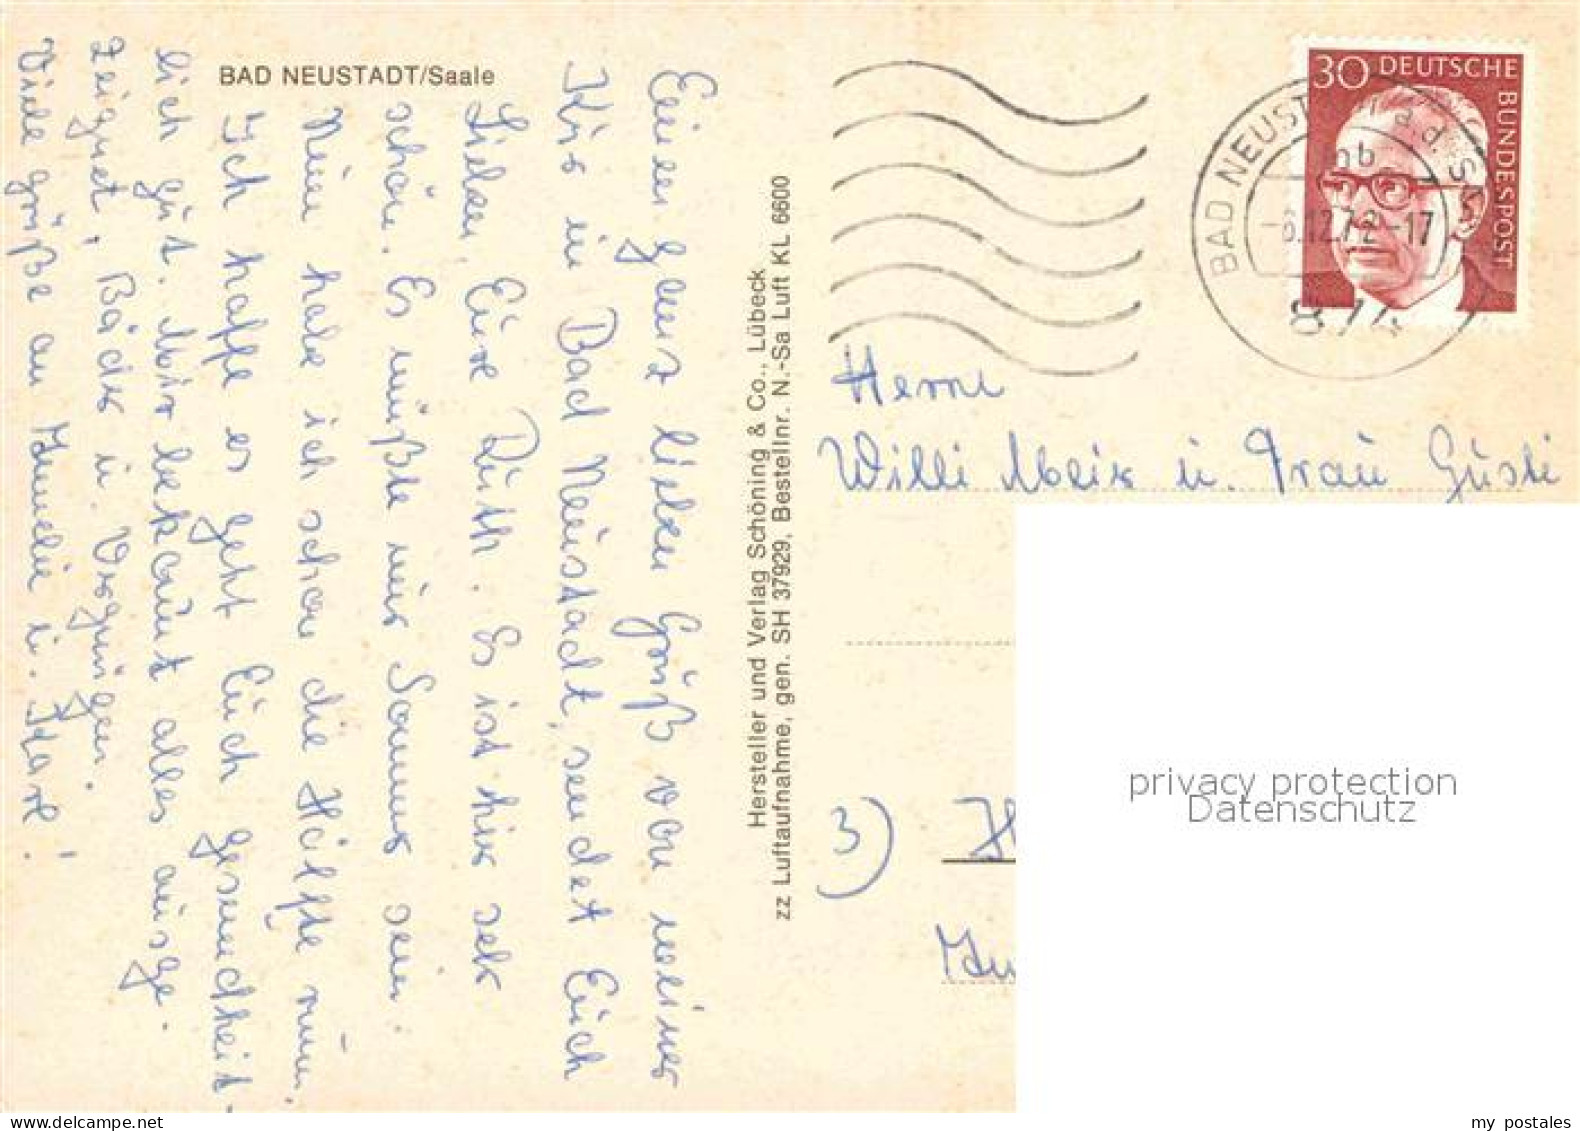 BAD NEUSTADT/Saale
Einen ganz lieben Gruß von meiner
Kur in Bad Neustadt, sendet Euch
Lieben, Eure Ruth. Es ist hier sehr
schön. Es müßte nur Sommer sein.
Nun habe ich schon die Hälfte rum.
Ich hoffe es geht Euch gesundheit-
lich gut. Mir bekommt alles ausge-
zeignet, Bäder u.
Viele grüße an u. Karl!
Hersteller und Verlag Schöning & Co., Lübeck
zz Luftaufnahme, gen. SH 37929, Bestellnr. N.-Sa Luft KL 6600
30 DEUTSCHE
BUNDESPOST
BAD NEUST a.d. S
mb
12.72-17
874
Herrn
Willi Meir u. Frau Gusti
3) H
privacy protection
Datenschutz
hbv-ak.com
my postales